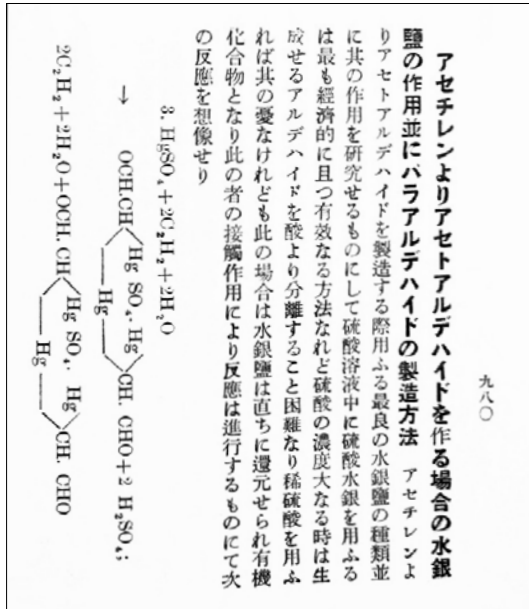 九八〇
アセチレンよりアセトアルデハイドを作る場合の水銀
鹽の作用並にパラアルデハイドの製造方法　アセチレンよ
りアセトアルデハイドを製造する際用ふる最良の水銀鹽の種類並
に其の作用を研究せるものにして硫酸溶液中に硫酸水銀を用ふる
は最も經濟的に且つ有效なる方法なれど硫酸の濃度大なる時は生
成せるアルデハイドを酸より分離すること困難なり稀硫酸を用ふ
れば其の憂なけれども此の場合は水銀鹽は直ちに還元せられ有機
化合物となり此の者の接觸作用により反應は進行するものにて次
の反應を想像せり
3. HgSO₄+2C₂H₂+2H₂O
→ OCH.CH〈Hg SO₄. Hg / Hg〉CH. CHO+2 H₂SO₄;
2C₂H₂+2H₂O+OCH. CH〈Hg SO₄. Hg / Hg〉CH. CHO